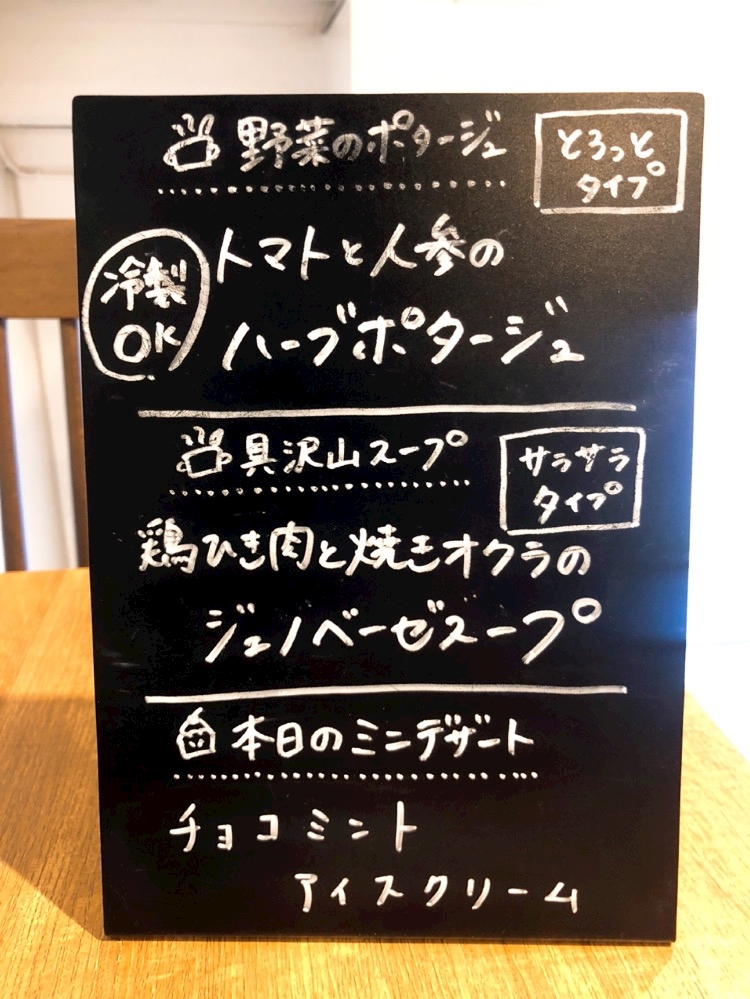 野菜のポタージュ
とろっと
タイプ
冷製
OK
トマトと人参の
ハーブポタージュ
具沢山スープ
サラサラ
タイプ
鶏ひき肉と焼きオクラの
ジェノベーゼスープ
本日のミニデザート
チョコミント
アイスクリーム